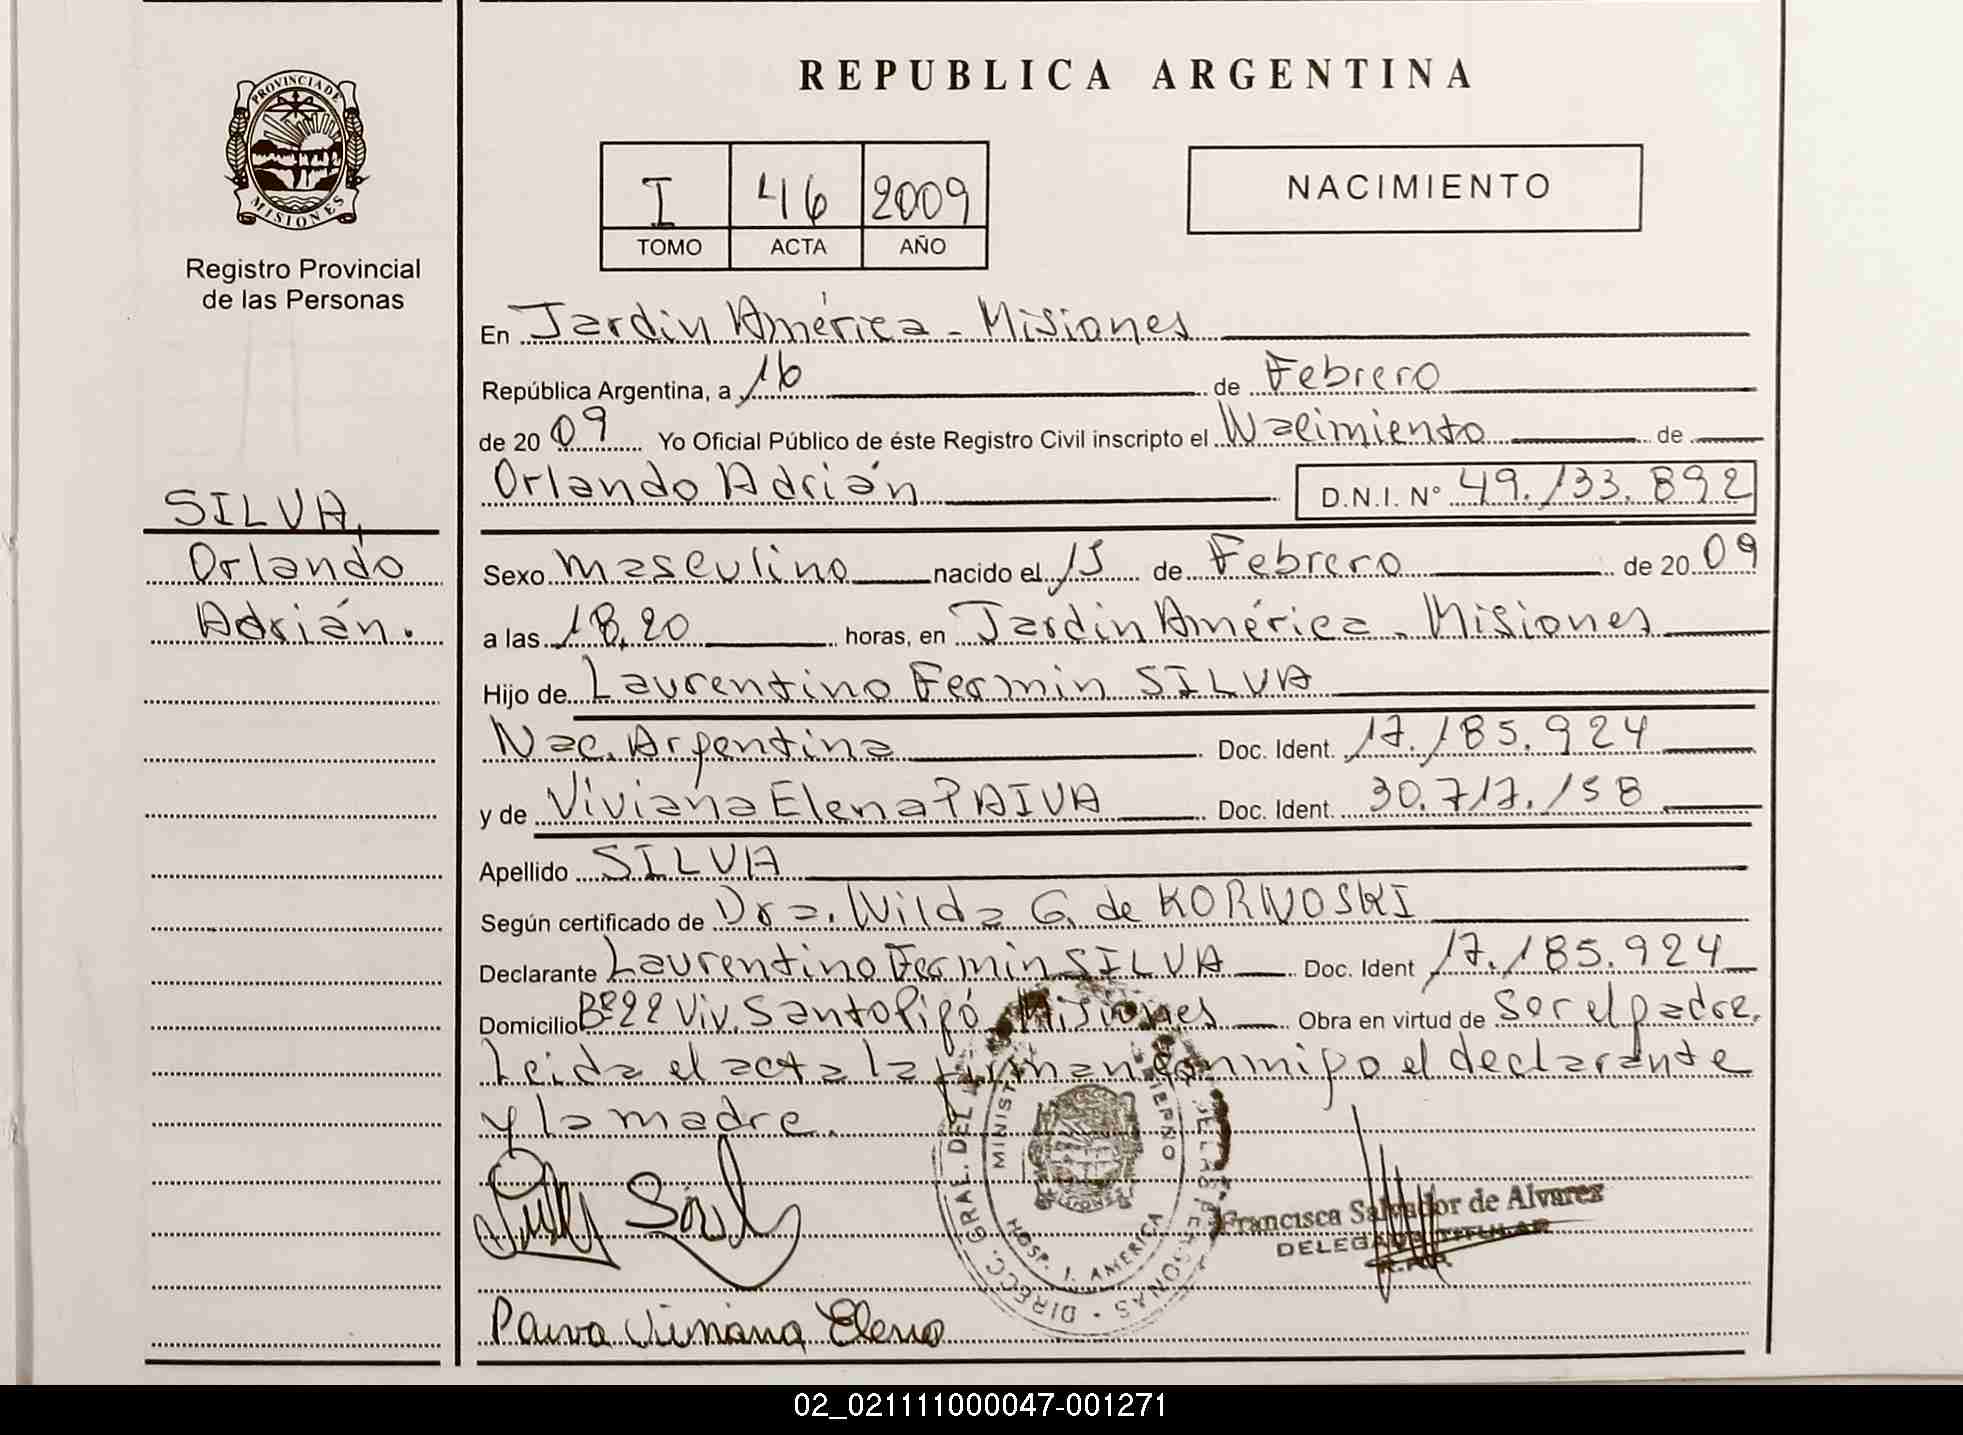 PROVINCIA DE
MISIONES
Registro Provincial
de las Personas
SILVA,
Orlando
Adrián.
REPUBLICA ARGENTINA
I 46 2009
TOMO ACTA AÑO
NACIMIENTO
En Jardín América - Misiones
República Argentina, a 16 de Febrero
de 2009 Yo Oficial Público de éste Registro Civil inscripto el Nacimiento de
Orlando Adrián D.N.I. N° 49.133.892
Sexo masculino nacido el 15 de Febrero de 2009
a las 18,20 horas, en Jardín América - Misiones
Hijo de Laurentino Fermin SILVA
Nac. Argentina Doc. Ident. 17.185.924
y de Viviana Elena PAIVA Doc. Ident. 30.717.158
Apellido SILVA
Según certificado de Dra. Nilda G. de KORNOSKI
Declarante Laurentino Fermin SILVA Doc. Ident 17.185.924
Domicilio Bº 22 Viv. Santo Pipó Misiones Obra en virtud de ser el padre.
Leida el acta la firman conmigo el declarante
y la madre.
DIRECC. GRAL. DEL
PERSONAS
HOSP. J. AMERICA
Francisca Salvador de Alvarez
DELEGADA TITULAR
R.P.P.
Paiva Viviana Elena
02_021111000047-001271